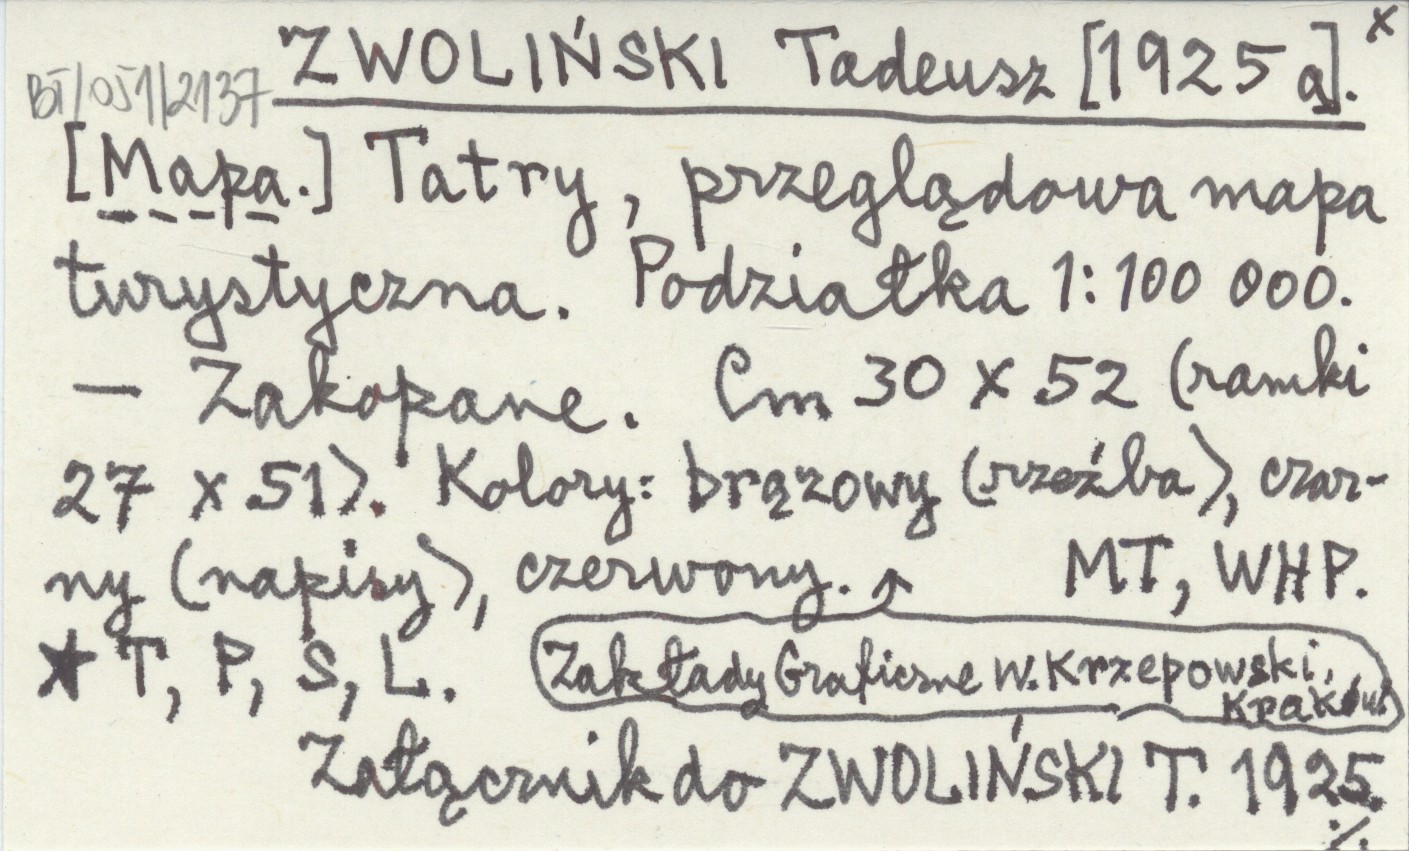 ZWOLIŃSKI Tadeusz [1925 a]. x
BT/051/2137
[Mapa.] Tatry, przeglądowa mapa
turystyczna. Podziałka 1:100 000.
— Zakopane. Cm 30 x 52 (ramki
27 x 51). Kolory: brązowy (rzeźba), czar-
ny (napisy), czerwony. MT, WHP.
★ T, P, S, L. Zakłady Graficzne W. Krzepowski,
Kraków
Załącznik do ZWOLIŃSKI T. 1925.
./.